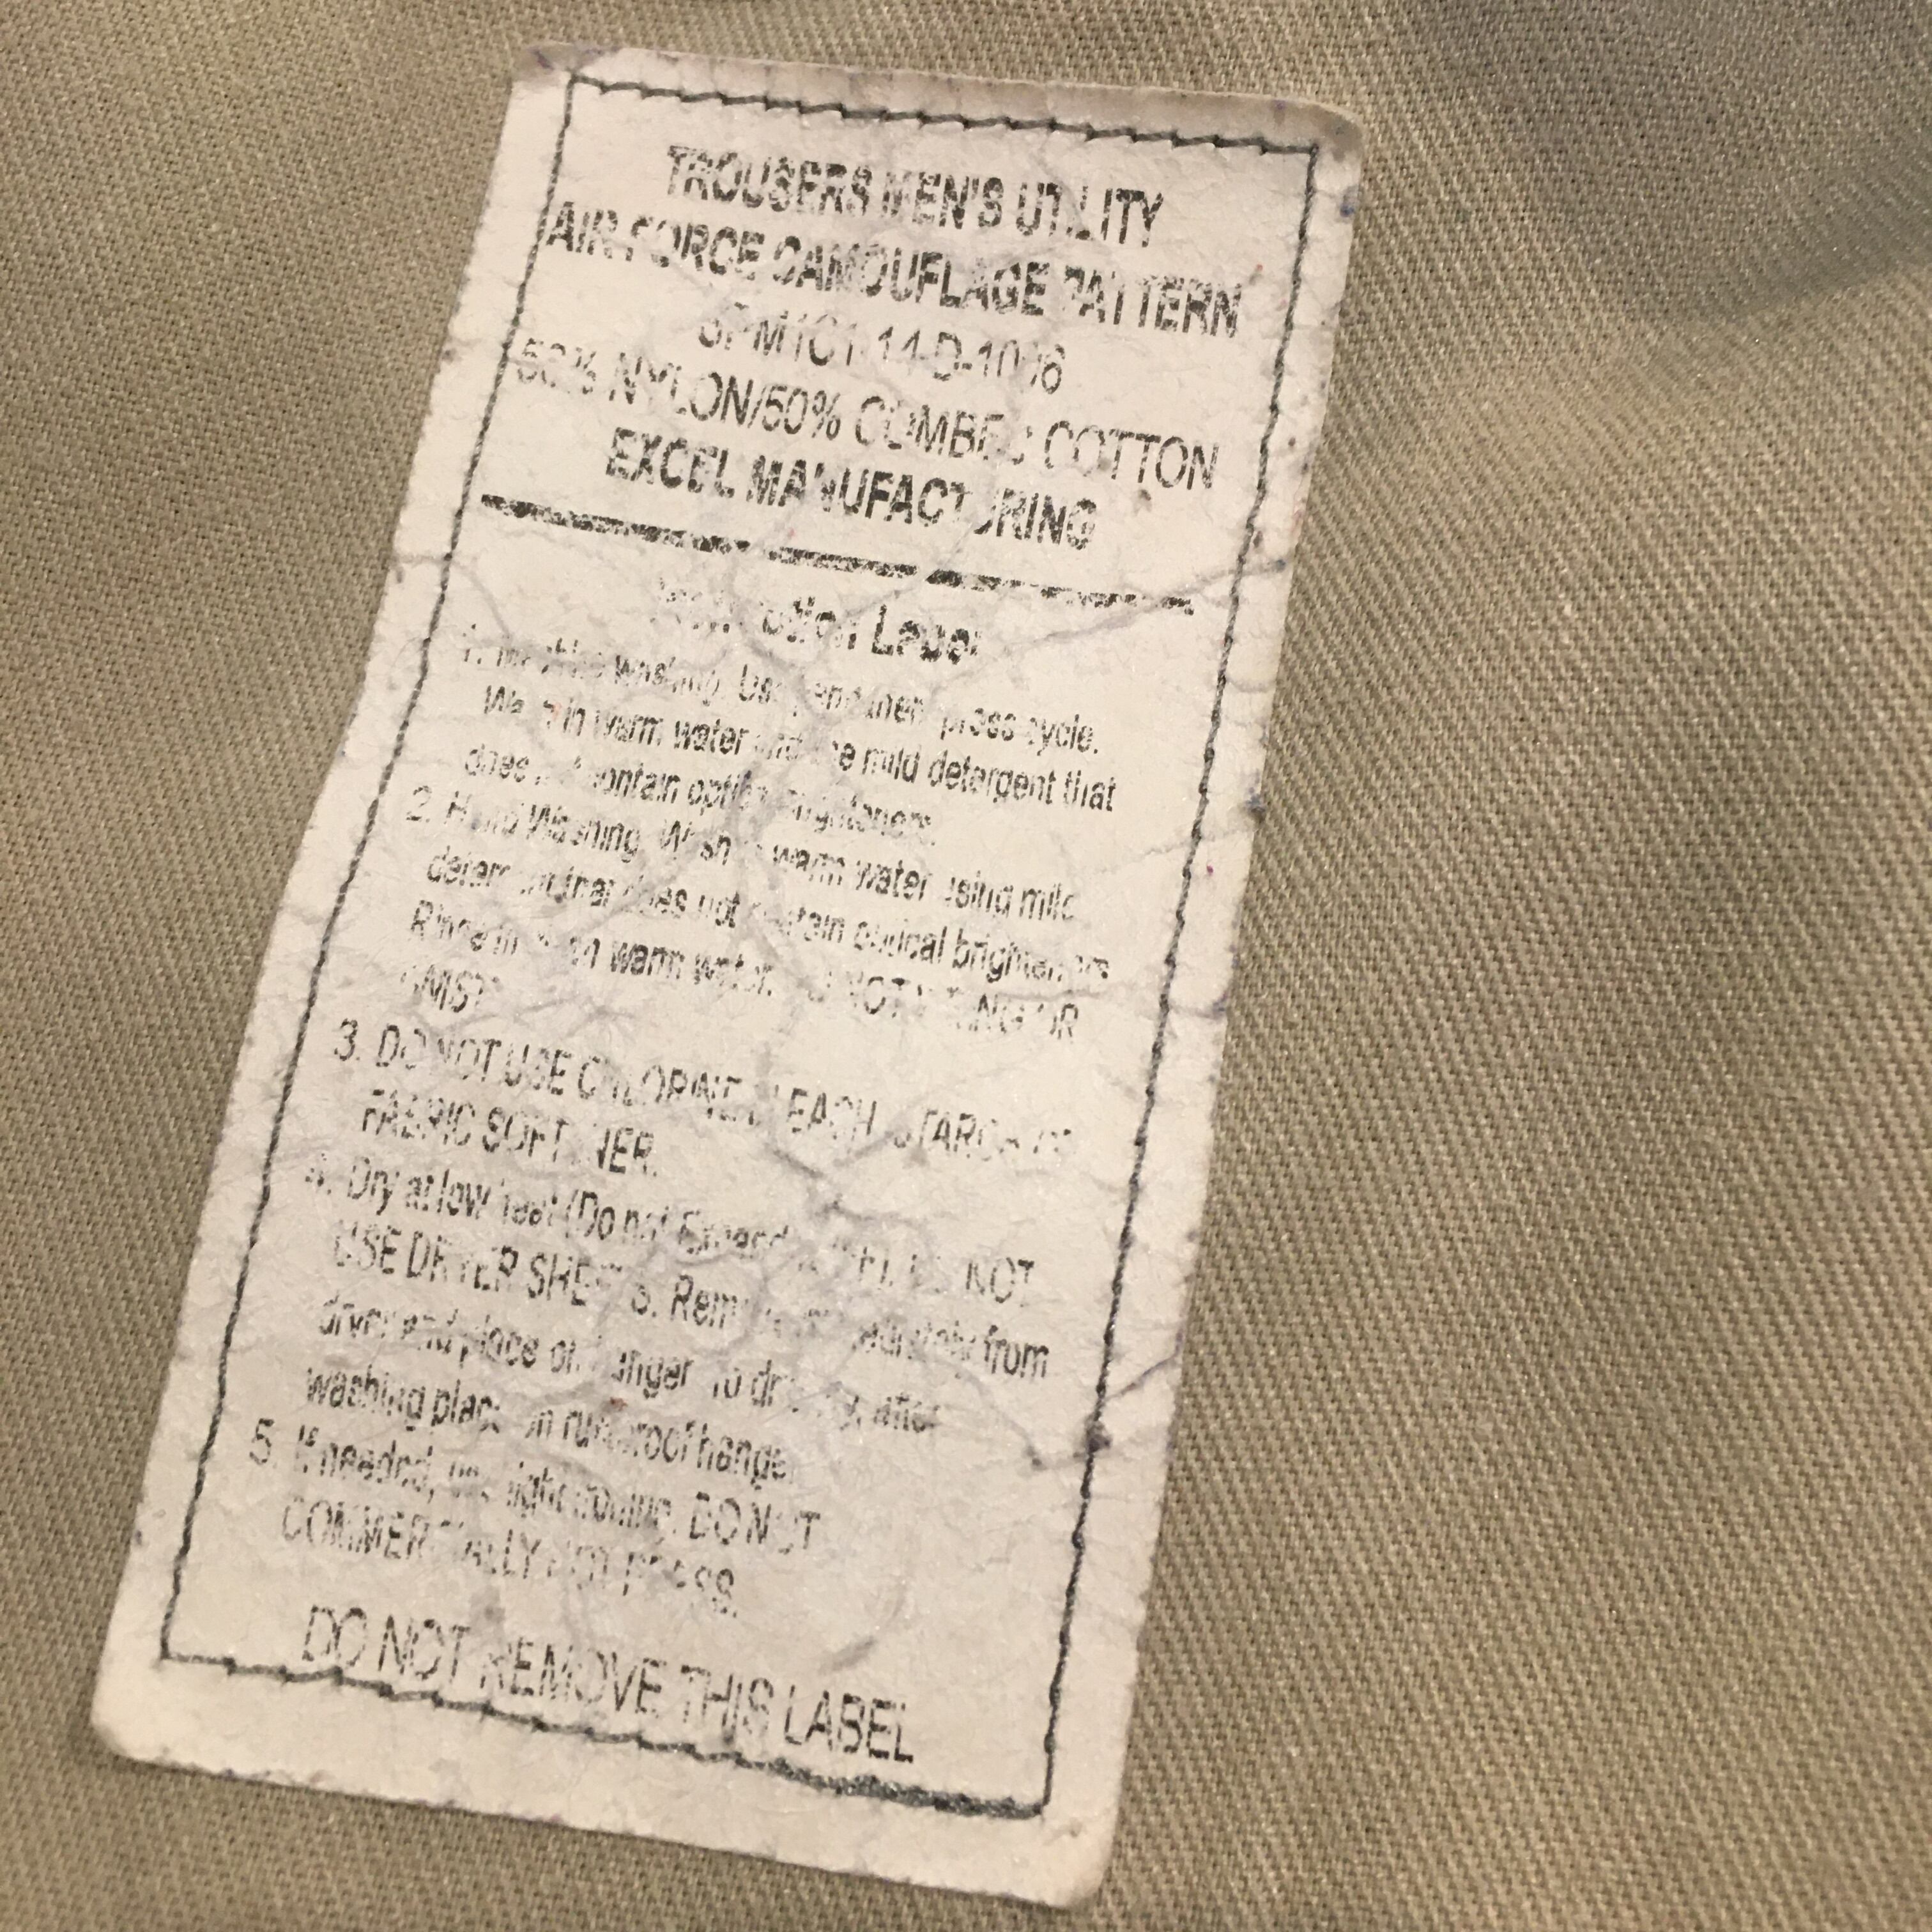 TROUSERS MEN'S UTILITY
AIR FORCE CAMOUFLAGE PATTERN
50% NYLON/50% COMBED COTTON
EXCEL MANUFACTURING
Instruction Label
1. Machine washing. Use permanent press cycle.
Wash in warm water and use mild detergent that
does not contain optical brighteners.
2. Hand Washing. Wash in warm water using mild
detergent that does not contain optical brighteners
Rinse in clean warm water. DO NOT WRING OR
TWIST
3. DO NOT USE CHLORINE BLEACH, STARCH OR
FABRIC SOFTENER.
4. Dry at low heat (Do not Exceed DO NOT
USE DRYER SHEETS. Remove immediately from
dryer and place on hanger. To drip dry, after
washing place on rustproof hanger.
5. If needed, use light ironing. DO NOT
COMMERCIALLY hot press.
DO NOT REMOVE THIS LABEL